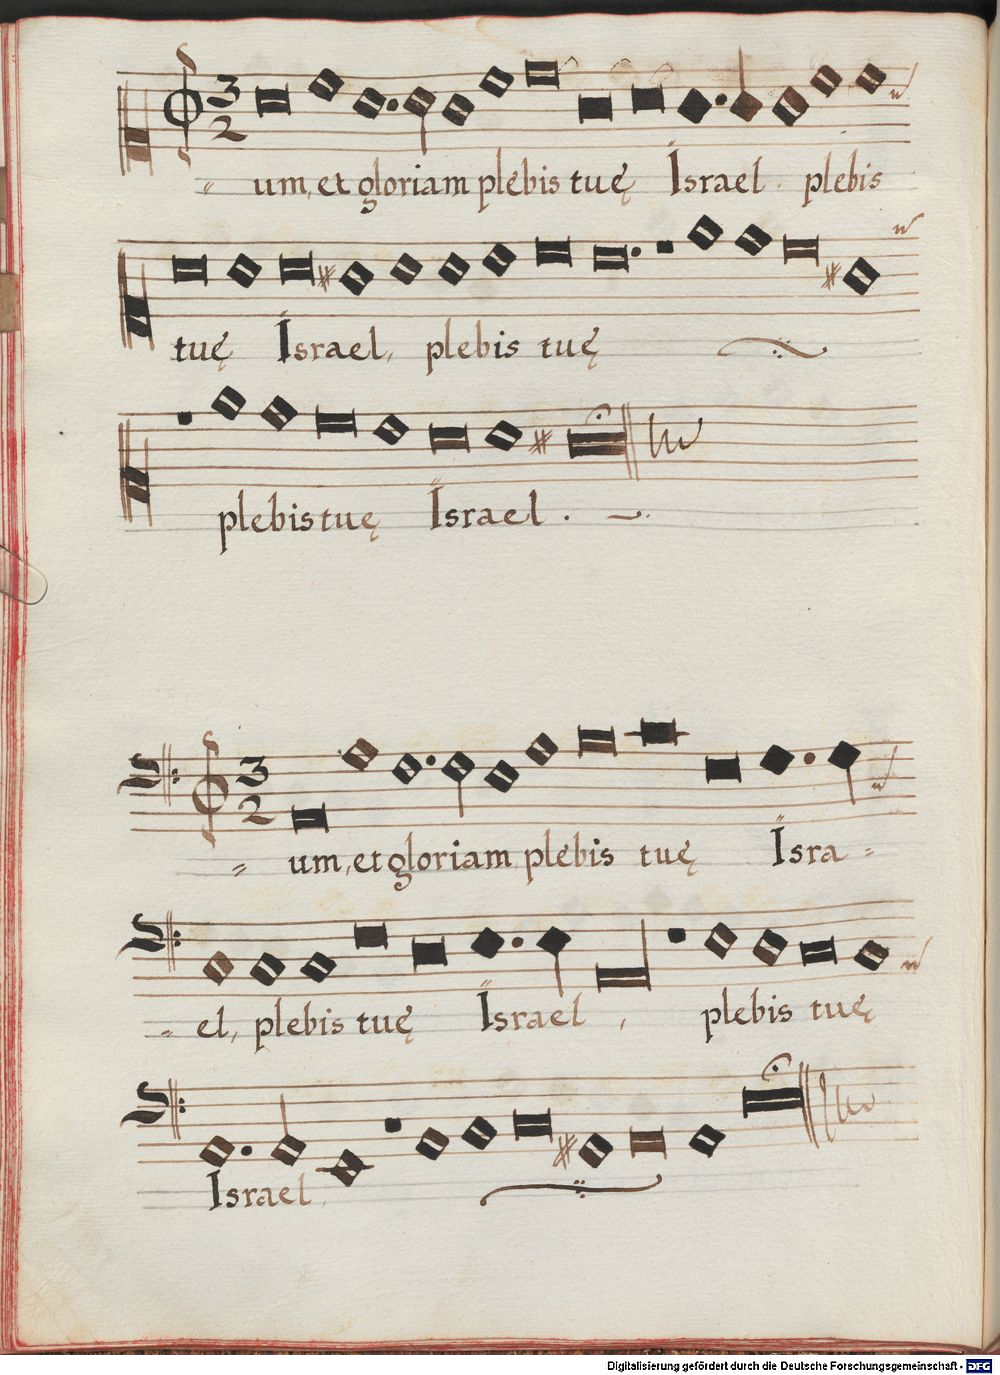 3
2
= um, et gloriam plebis tuę Israel. plebis
tuę Israel, plebis tuę
plebis tuę Israel.
3
2
= um, et gloriam plebis tuę Isra =
= el, plebis tuę Israel, plebis tuę
Israel
Digitalisierung gefördert durch die Deutsche Forschungsgemeinschaft - DFG